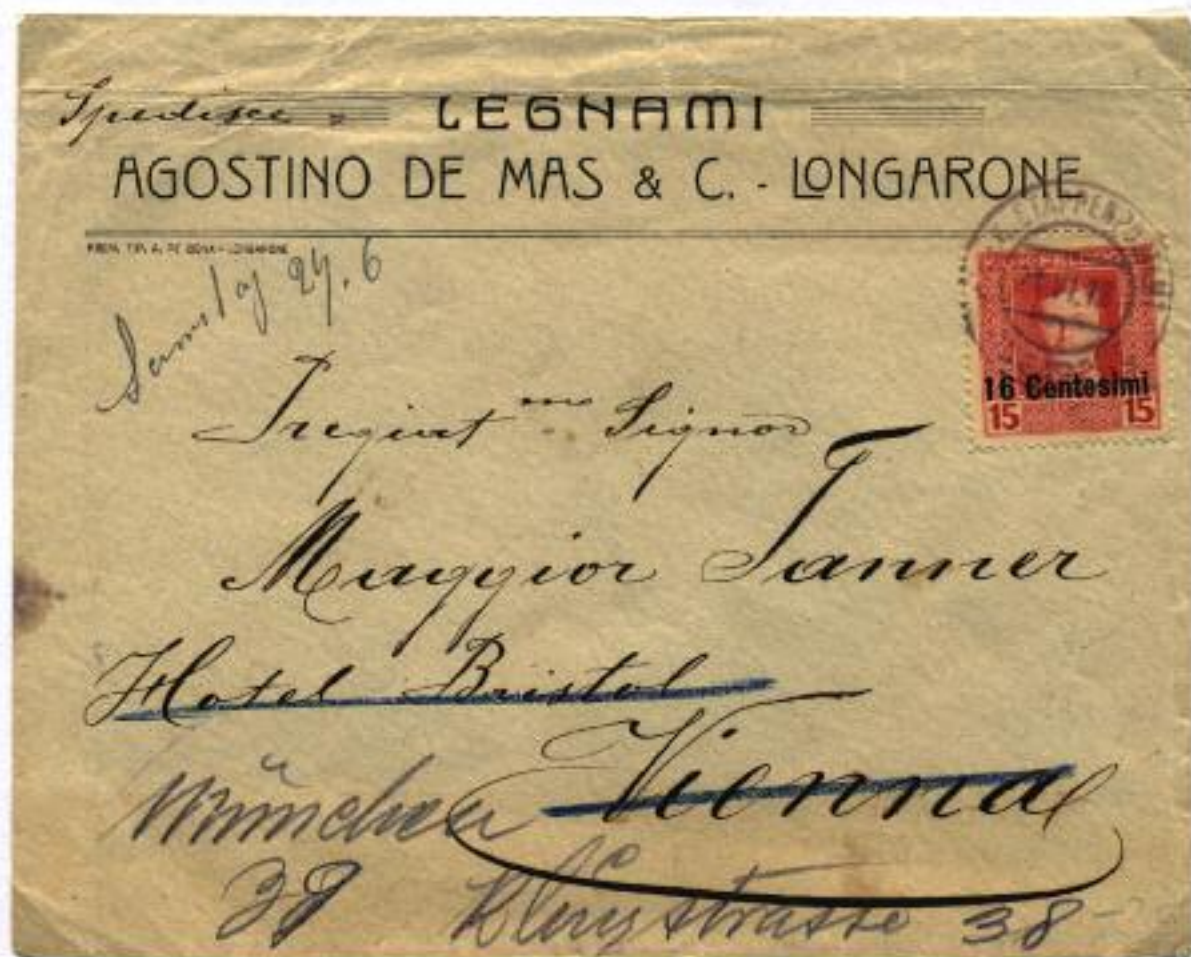 Spedisce LEGNAMI
AGOSTINO DE MAS & C. - LONGARONE
PREM. TIP. A. DE BONA - LONGARONE
16 Centesimi
15 15
Pregiat mo Signor
Maggior Tanner
Hotel Bristol
Vienna
München
38 strasse 38